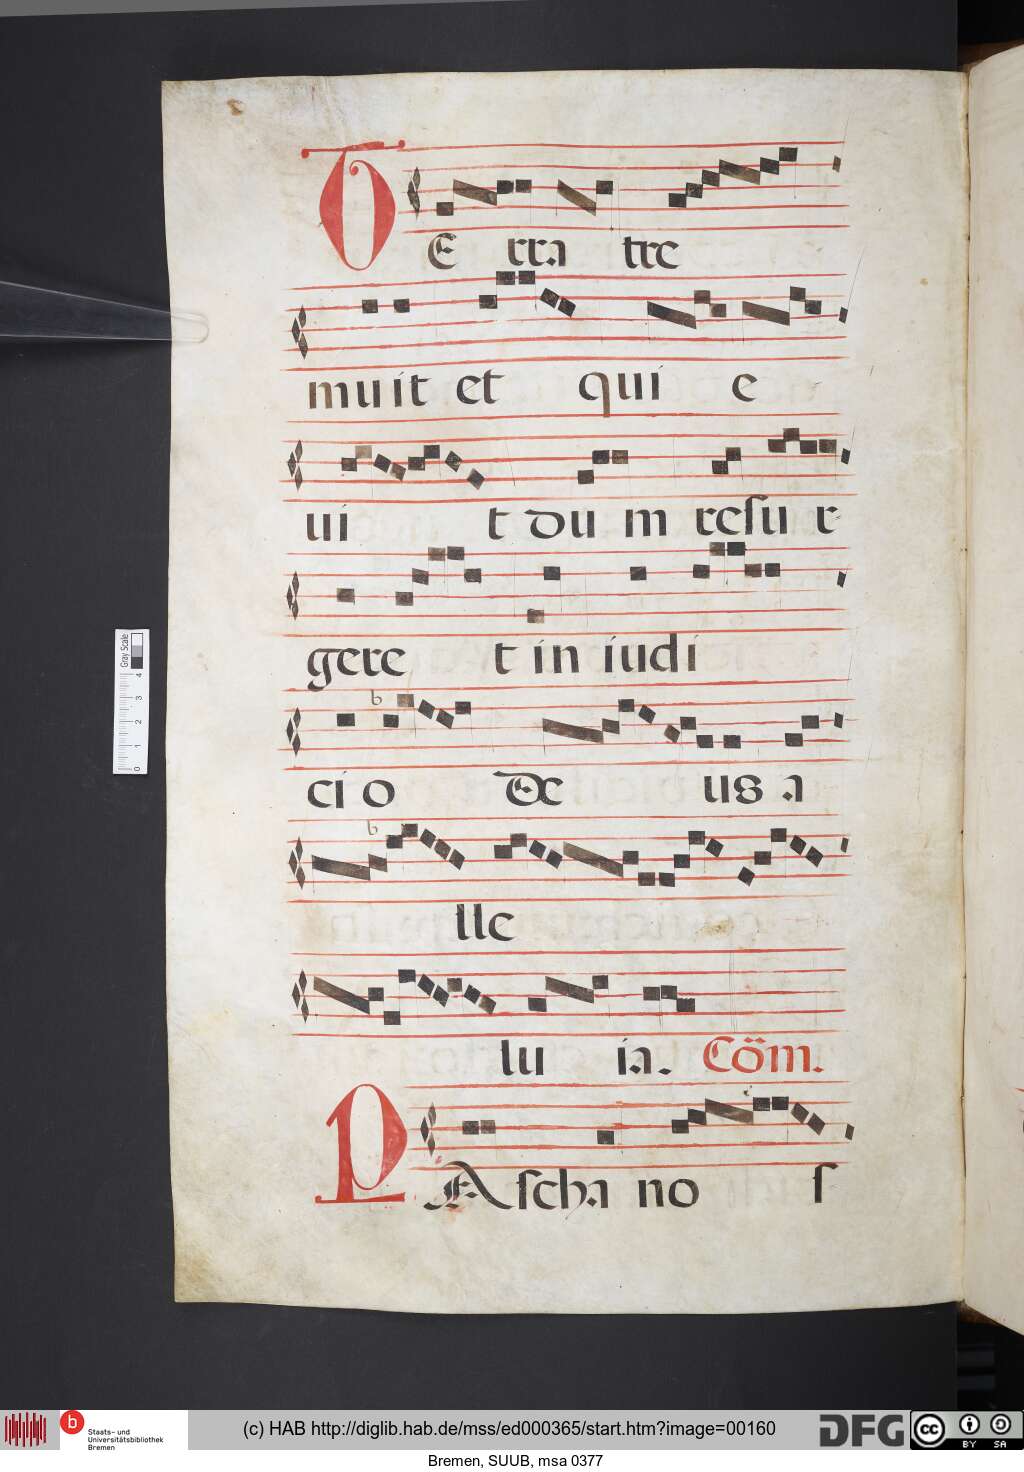 TErra tre
muit et qui e
ui t du m resu r
gere t in iudi
ci o De us a
lle
lu ia. Cōm.
PAscha no s
Gray Scale
4
3
2
1
0
b
b
b Staats- und
Universitätsbibliothek
Bremen
(c) HAB http://diglib.hab.de/mss/ed000365/start.htm?image=00160
DFG
cc BY SA
Bremen, SUUB, msa 0377